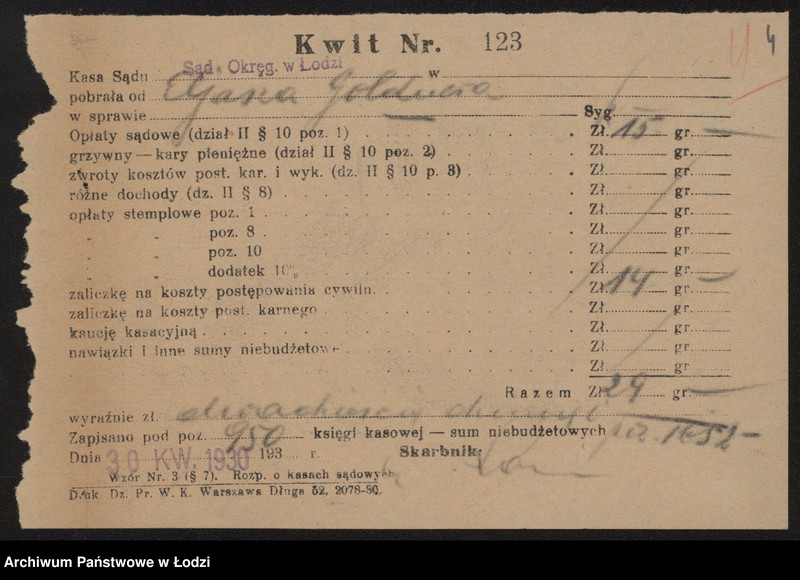 Kwit Nr. 123
4
Kasa Sądu Sąd Okręg. w Łodzi w
pobrała od
w sprawie Syg.
Opłaty sądowe (dział II § 10 poz. 1) Zł. 15 gr. —
grzywny — kary pieniężne (dział II § 10 poz. 2) Zł. gr.
zwroty kosztów post. kar. i wyk. (dz. II § 10 p. 3) Zł. gr.
różne dochody (dz. II § 8) Zł. gr.
opłaty stemplowe poz. 1 Zł. gr.
" " poz. 8 Zł. gr.
" " poz. 10 Zł. gr.
" " dodatek 10% Zł. gr.
zaliczkę na koszty postępowania cywiln. Zł. 14 gr. —
zaliczkę na koszty post. karnego Zł. gr.
kaucję kasacyjną Zł. gr.
nawiązki i inne sumy niebudżetowe Zł. gr.
Zł. gr.
Razem Zł. 29 gr. —
wyraźnie zł.
Zapisano pod poz. 950 księgi kasowej — sum niebudżetowych 1652 —
Dnia 30 KW. 1930 193 r. Skarbnik:
Wzór Nr. 3 (§ 7). Rozp. o kasach sądowych
Druk Dz. Pr. W. K. Warszawa Długa 52. 2078-30.
Archiwum Państwowe w Łodzi